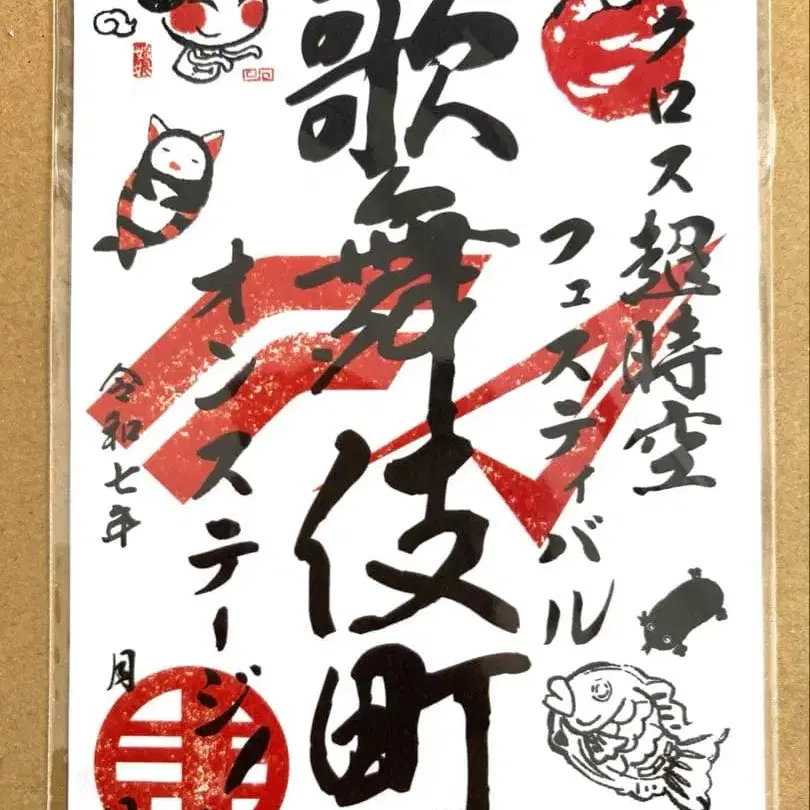 クロス超時空
フェスティバル
歌舞伎町
オンステージ
令和七年
月